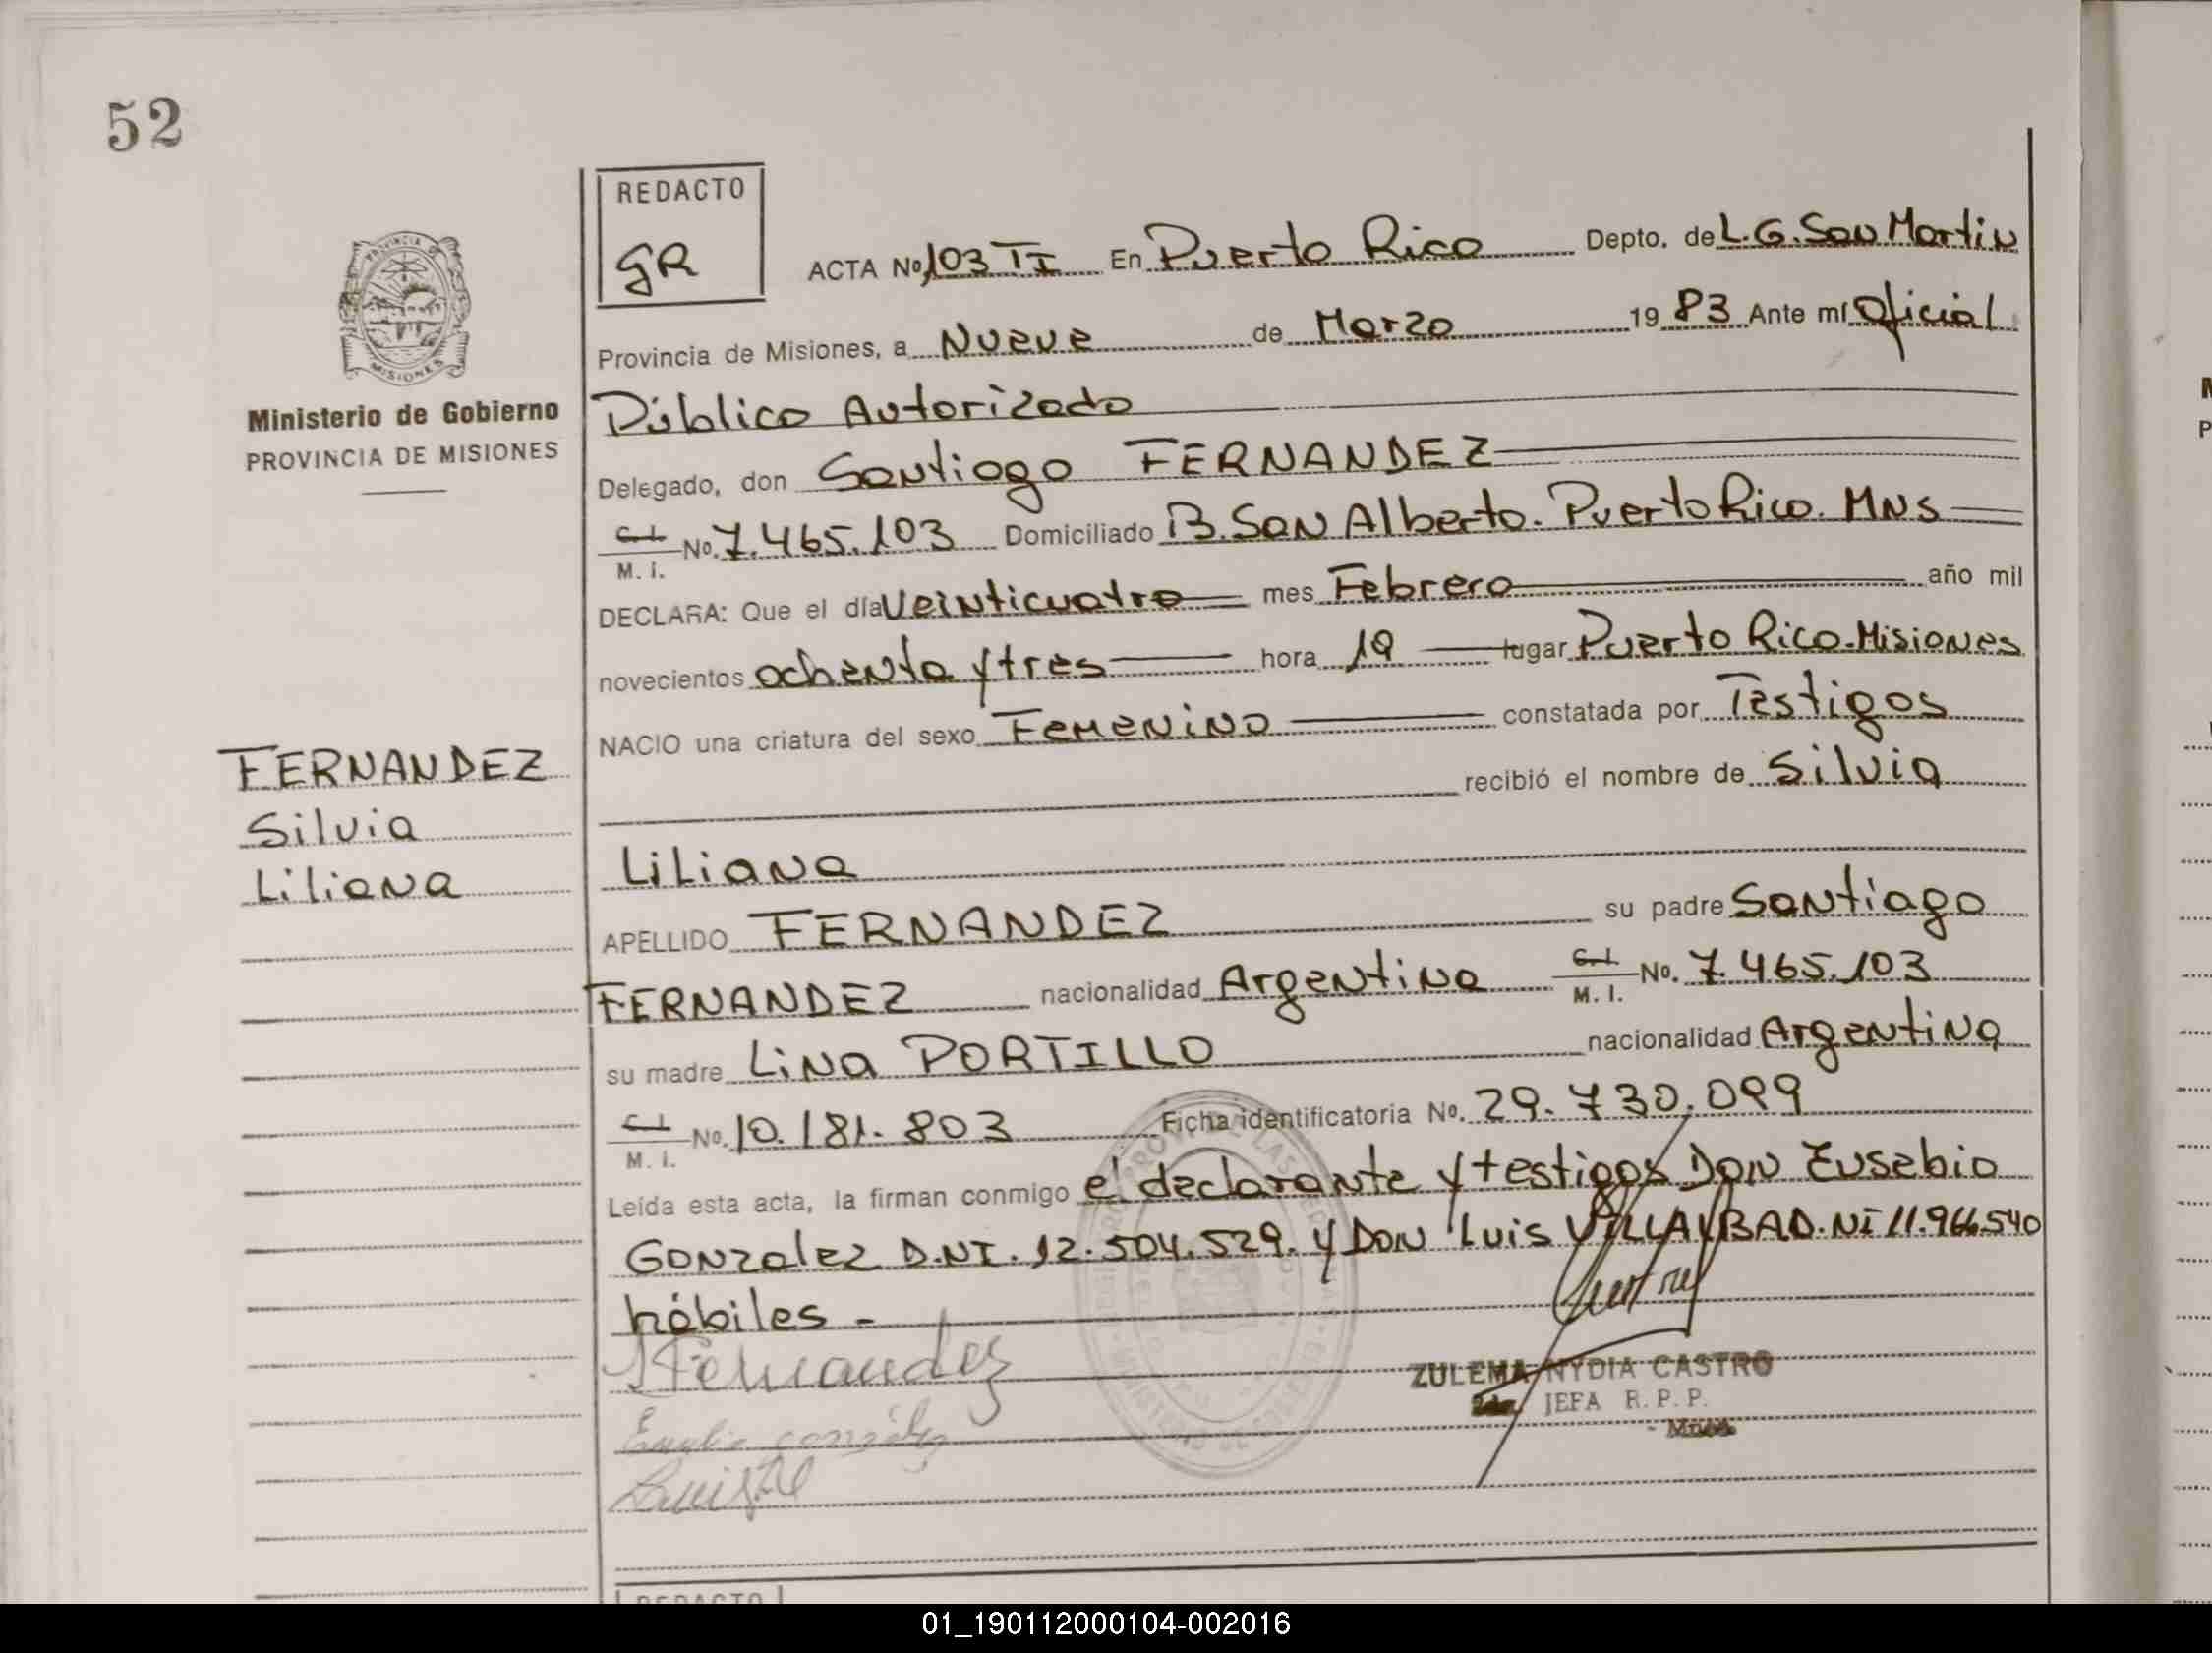 52
REDACTO
GR
ACTA Nº 103 TI En Puerto Rico Depto. de L.G. San Martin
PROVINCIA DE
MISIONES
Provincia de Misiones, a Nueve de Marzo 1983 Ante mí Oficial
Ministerio de Gobierno
PROVINCIA DE MISIONES
Público Autorizado
Delegado, don Santiago FERNANDEZ
C.I. M. I. No. 7.465.103 Domiciliado B. San Alberto. Puerto Rico. MNS
DECLARA: Que el día Veinticuatro mes Febrero año mil
novecientos ochenta y tres hora 19 lugar Puerto Rico. Misiones
NACIO una criatura del sexo Femenino constatada por Testigos
recibió el nombre de Silvia
FERNANDEZ
Silvia
Liliana
Liliana
APELLIDO FERNANDEZ su padre Santiago
FERNANDEZ nacionalidad Argentina C.I. M. I. No. 7.465.103
su madre Lina PORTILLO nacionalidad Argentina
C.I. M. I. No. 10.181.803 Ficha identificatoria No. 29.730.099
Leída esta acta, la firman conmigo el declarante y testigos Don Eusebio
Gonzalez D.NI. 12.504.529. y Don Luis VILLALBA D.NI 11.966.540
hábiles -
Fernandez
ZULEMA NYDIA CASTRO
JEFA R. P. P.
gonzález
Luis
REDACTO
01_190112000104-002016